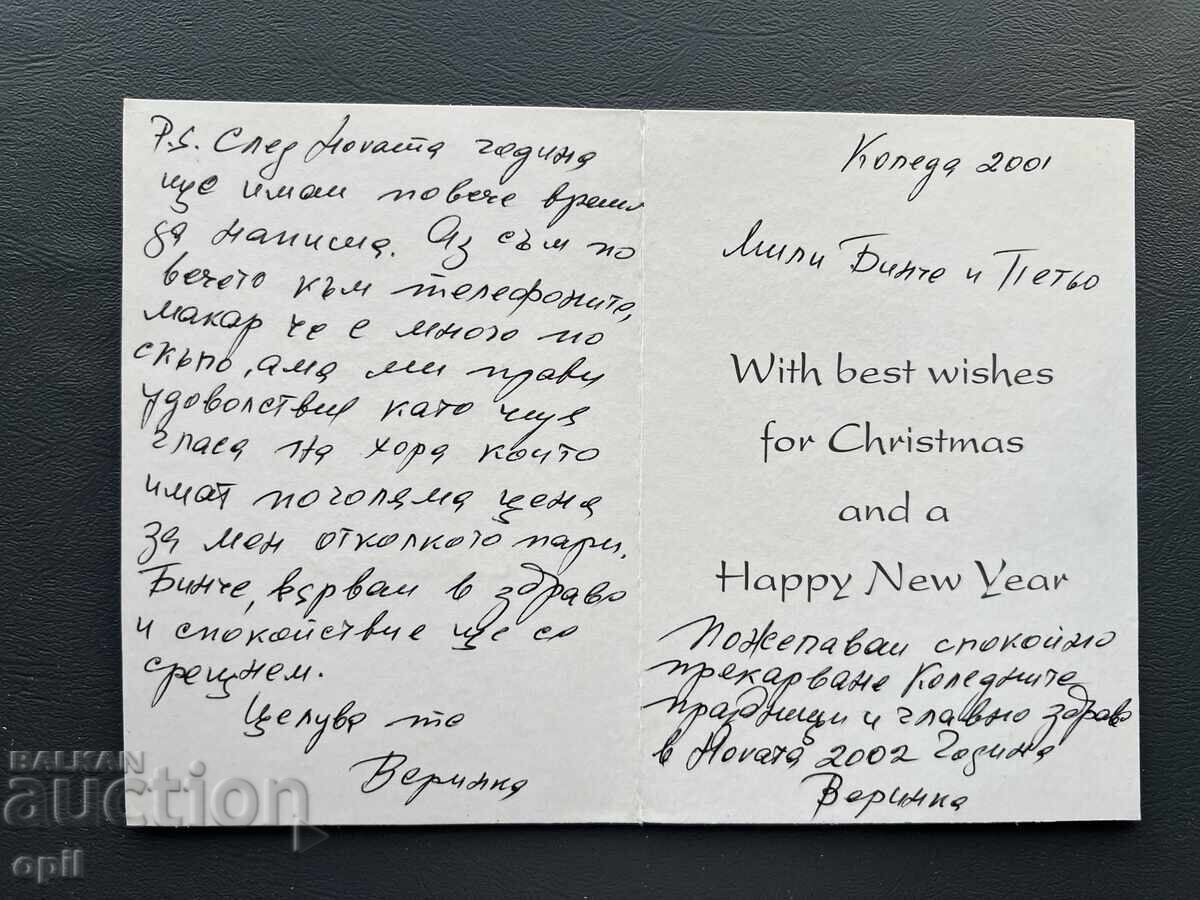 P.S. След Новата година
ще имам повече време
да напиша. Аз съм по
вечето към телефоните,
макар че е много по
скъпо, ама ми прави
удоволствие като чуя
гласа на хора които
имат поголяма цена
за мен отколкото пари.
Бинче, вярвам в здраво
и спокойствие ще се
срещнем.
Целува те
Веринка
Коледа 2001
Мили Бинче и Петьо
With best wishes
for Christmas
and a
Happy New Year
Пожелавам спокойно
прекарване Коледните
празници и главно здраве
в Новата 2002 Година
Веринка
BALKAN
auction
opil